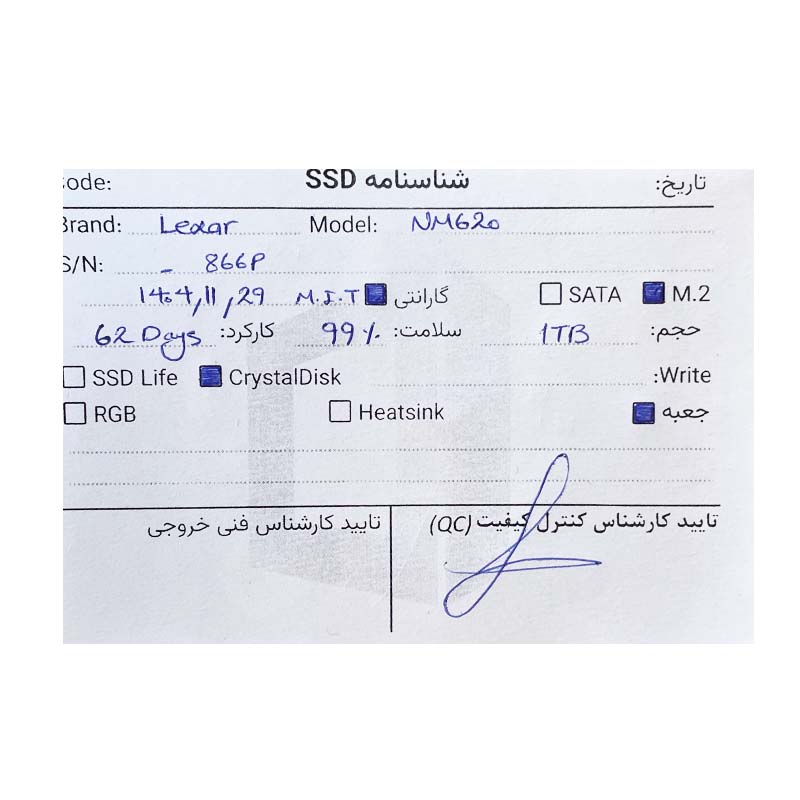 شناسنامه SSD تاریخ: ode:
Brand: Lexar Model: NM620
S/N: - 866P
M.2 SATA گارانتی M.I.T 1404,11,29
حجم: 1TB سلامت: 99% کارکرد: 62 Days
SSD Life CrystalDisk Write:
RGB Heatsink جعبه
تایید کارشناس کنترل کیفیت (QC) تایید کارشناس فنی خروجی